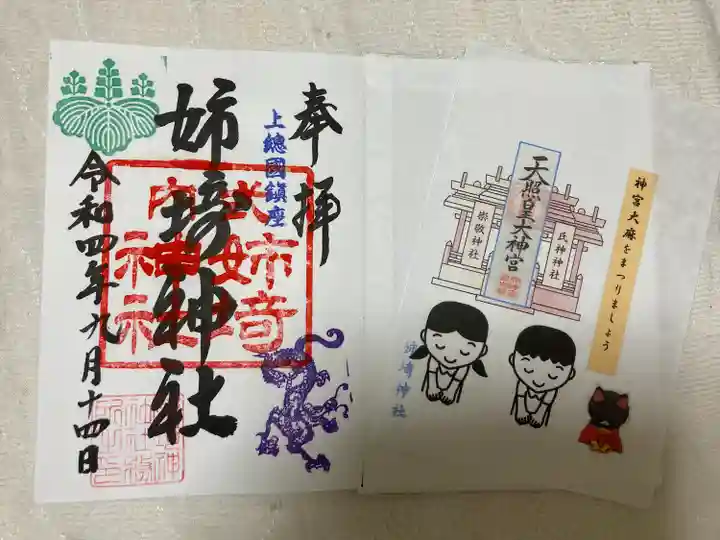 奉拝
上總國鎮座
姉埼神社
令和四年九月十四日
神宮大麻をまつりましょう
氏神神社
天照皇大神宮
崇敬神社
姉埼神社